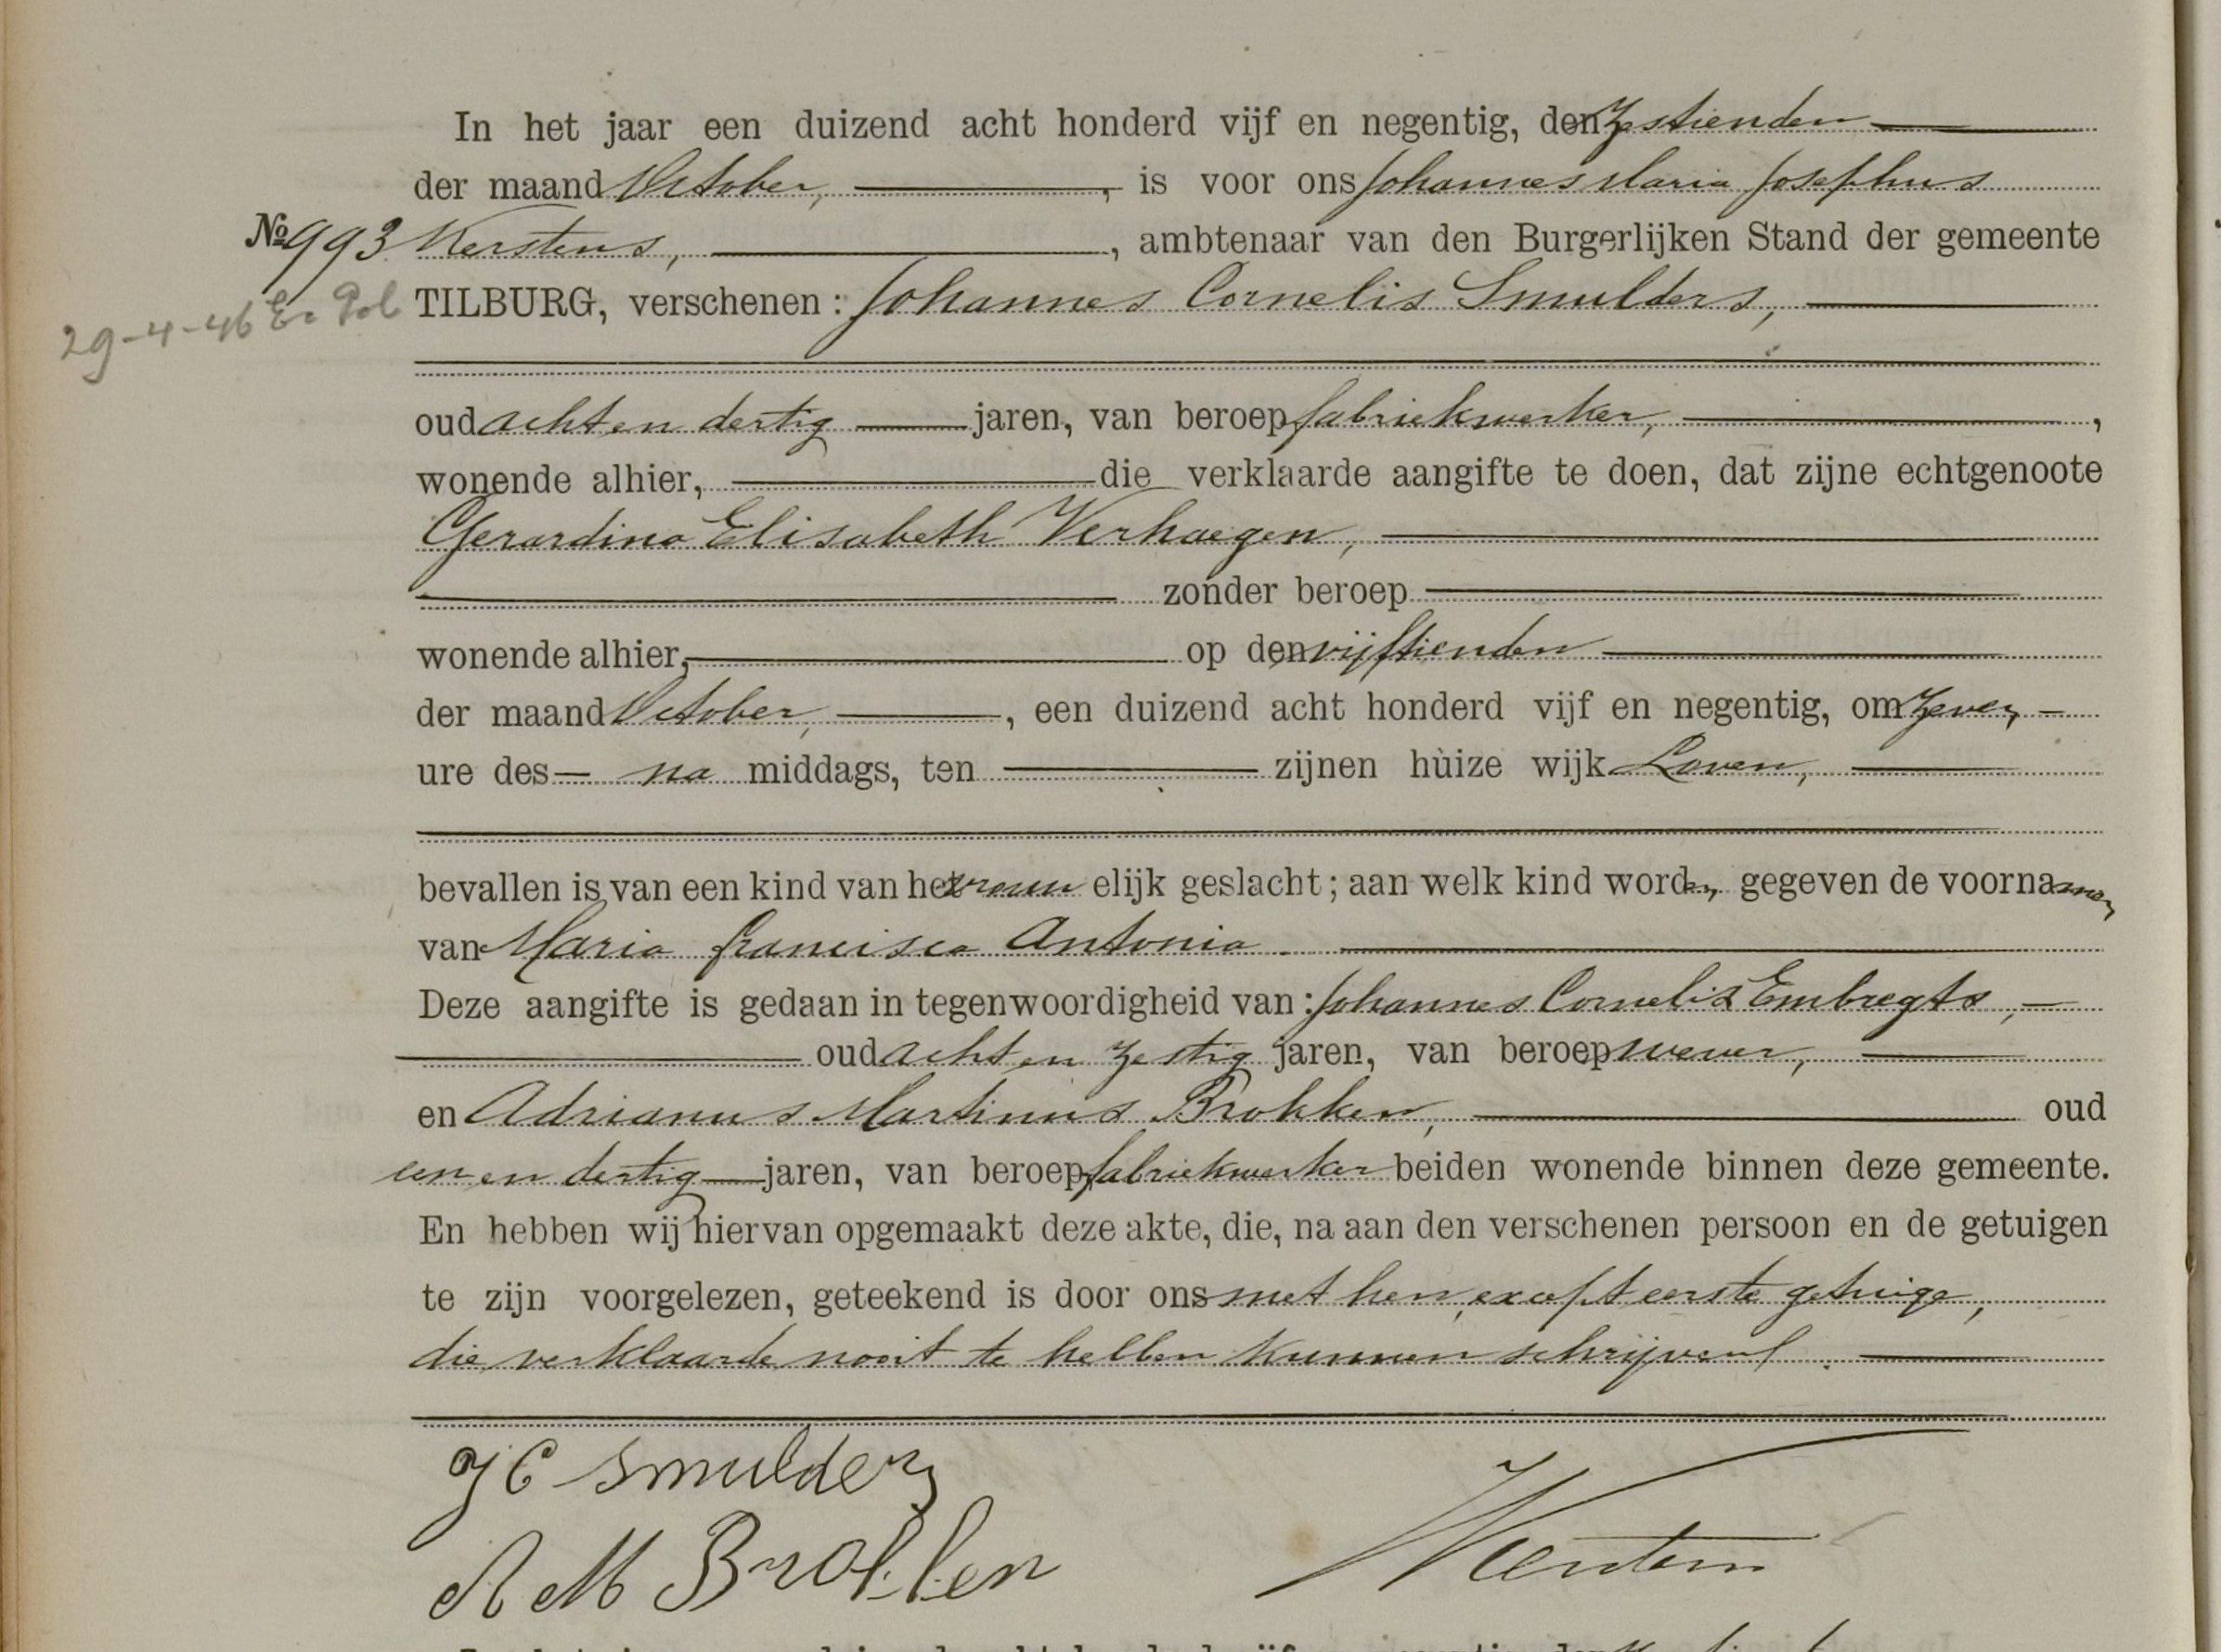 In het jaar een duizend acht honderd vijf en negentig, den zestienden
der maand October, , is voor ons Johannes Maria Josephus
No 993 Kerstens, , ambtenaar van den Burgerlijken Stand der gemeente
29-4-46
TILBURG, verschenen: Johannes Cornelis Smulders,
oud acht en dertig jaren, van beroep fabriekwerker, ,
wonende alhier, die verklaarde aangifte te doen, dat zijne echtgenoote
Gerardina Elisabeth Verhaegen,
zonder beroep
wonende alhier, op den vijftienden
der maand October, , een duizend acht honderd vijf en negentig, om zeven
ure des na middags, ten zijnen huize wijk Loven,
bevallen is van een kind van het vrouwelijk geslacht; aan welk kind worden gegeven de voornamen
van Maria Francisca Antonia
Deze aangifte is gedaan in tegenwoordigheid van: Johannes Cornelis Embregts,
oud acht en zestig jaren, van beroep wever,
en Adrianus Martinus Brokken, oud
een en dertig jaren, van beroep fabriekwerker beiden wonende binnen deze gemeente.
En hebben wij hiervan opgemaakt deze akte, die, na aan den verschenen persoon en de getuigen
te zijn voorgelezen, geteekend is door ons met hen, except eerste getuige,
die verklaarde nooit te hebben kunnen schrijven.
J C Smulders
A M Brokken
Kerstens